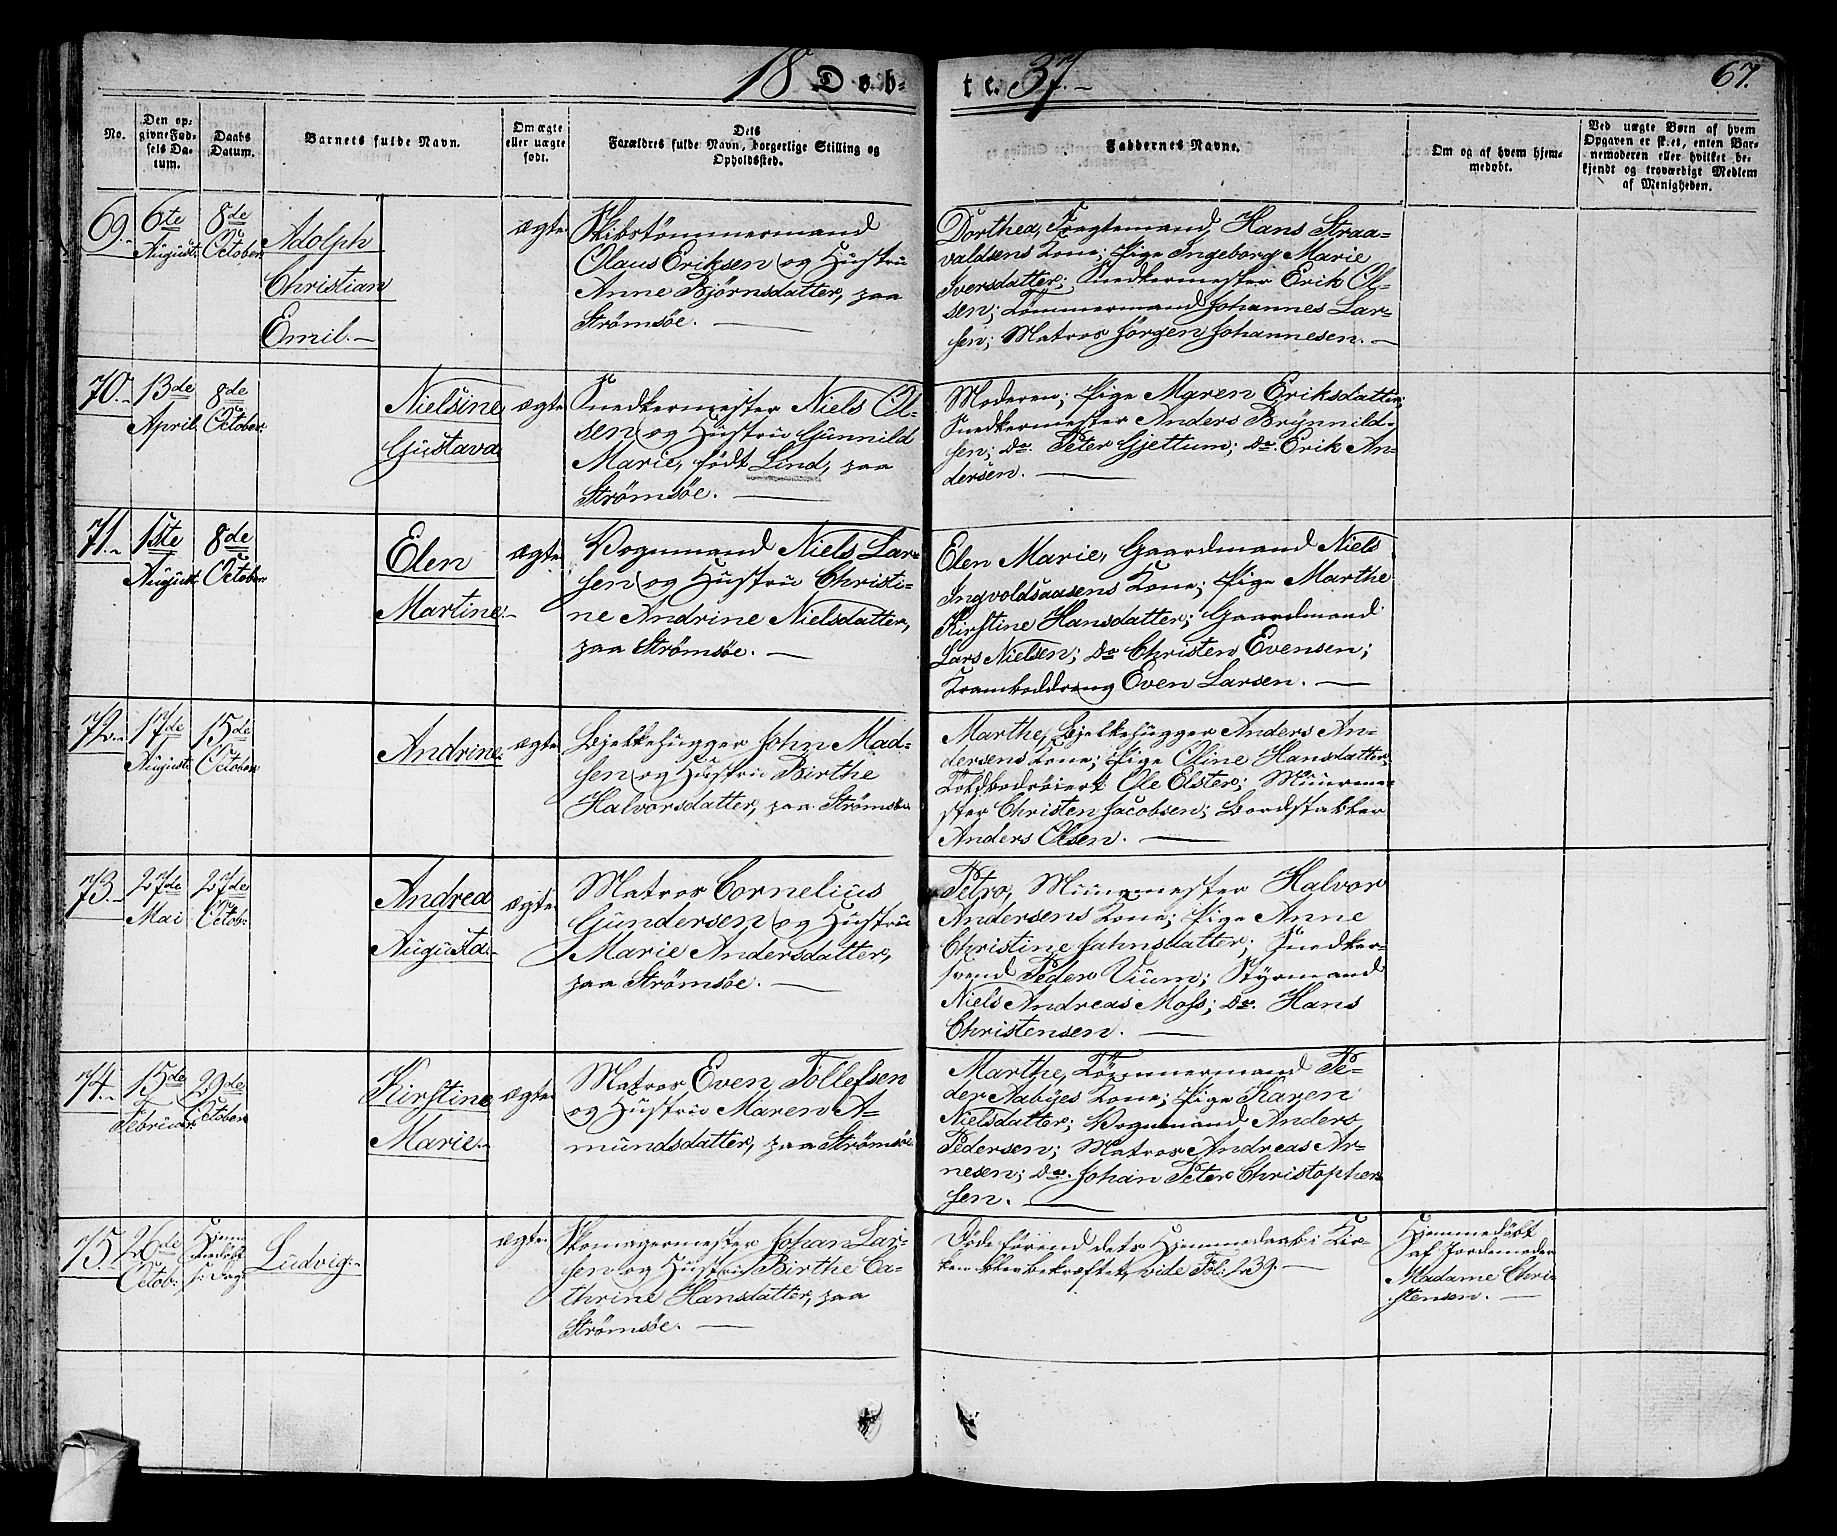 18 Døb-
te. 37.-
67.
No.
Den op-
givne Fød-
sels Da-
tum.
Daabs
Datum.
Barnets fulde Navn.
Om ægte
eller uægte
født.
Dets
Forældres fulde Navn, borgerlige Stilling og
Opholdssted.
Faddernes Navne.
Om og af hvem hjem-
medøbt.
Ved uægte Børn af hvem
Opgaven er skeet, enten Bar-
nemoderen eller hvilket be-
kjendt og troværdigt Medlem
af Menigheden.
69.-
6te
August.
8de
October.
Adolph
Christian
Emil.-
ægte.
Skibstømmermand
Olaus Eriksen og Hustru
Anne Bjørnsdatter, paa
Strømsøe.
Dorthea, Fragtemand Hans Straa-
valdsens Kone; Pige Ingeborg Marie
Iversdatter; Snedkermester Erik Ol-
sen; Tømmermand Johannes Lar-
sen; Matros Jørgen Johannesen.-
70.-
13de
April.
8de
October.
Nielsine
Gustava
ægte
Snedkermester Niels Ol-
sen og Hustru Gunnild
Marie, født Lind, paa
Strømsøe.
Moderen; Pige Maren Eriksdatter;
Snedkermester Anders Brynnild-
sen; do. Peter Gjettum; do. Erik An-
dersen.
71.-
1ste
August.
8de
October.
Elen
Martine.-
ægte.
Vognmand Niels Lar-
sen og Hustru Christi-
ne Andrine Nielsdatter,
paa Strømsøe.
Elen Marie, Gaardmand Niels
Ingvoldsaasens Kone; Pige Marthe
Kirstine Hansdatter; Gaardmand
Lars Nielsen; do Christen Evensen;
Kramboddreng Even Larsen.
72.-
17de
August.
15de
October
Andrine.
ægte
Bjelkehugger John Mad-
sen og Hustru Birthe
Halvorsdatter, paa Strømsøe
Marthe, Bjelkehugger Anders An-
dersens Kone; Pige Oline Hansdatter;
Ole Elster; Muurme-
ster Christen Jacobsen; Bordstabler
Anders Olsen.
73.-
27de
Mai
27de
Octob.
Andrea
Augusta.-
ægte.
Matros Cornelius
Gundersen og Hustru
Marie Andersdatter,
paa Strømsøe.
Petro, Muurmester Halvor
Andersens Kone; Pige Anne
Christine Jahnsdatter; Snedker-
svend Peder Vium; Styrmand
Niels Andreas Moss; do. Hans
Christensen.
74.-
15de
Februar
29de
October
Kirstine
Marie.-
ægte.
Matros Even Tollefsen
og Hustru Maren A-
mundsdatter, paa Strømsøe.
Marthe, Tømmermand Pe-
der Aabyes Kone; Pige Karen
Nielsdatter; Vognmand Anders
Pedersen; Matros Andreas Ar-
nesen; do. Johan Peter Christopher-
sen.
75.-
26de
Octob.
Hjem-
medøbt
s. Dag
Ludvig.-
ægte.
Skomagermester Johan Lar-
sen og Hustru Birthe Ca-
thrine Hansdatter, paa
Strømsøe.
Døde førend dets Hjemmedaab i Kir-
ken blev bekræftet, vide Fol: 239.
Hjemmedøbt
af Jordemoder
Madame Chri-
stensen.